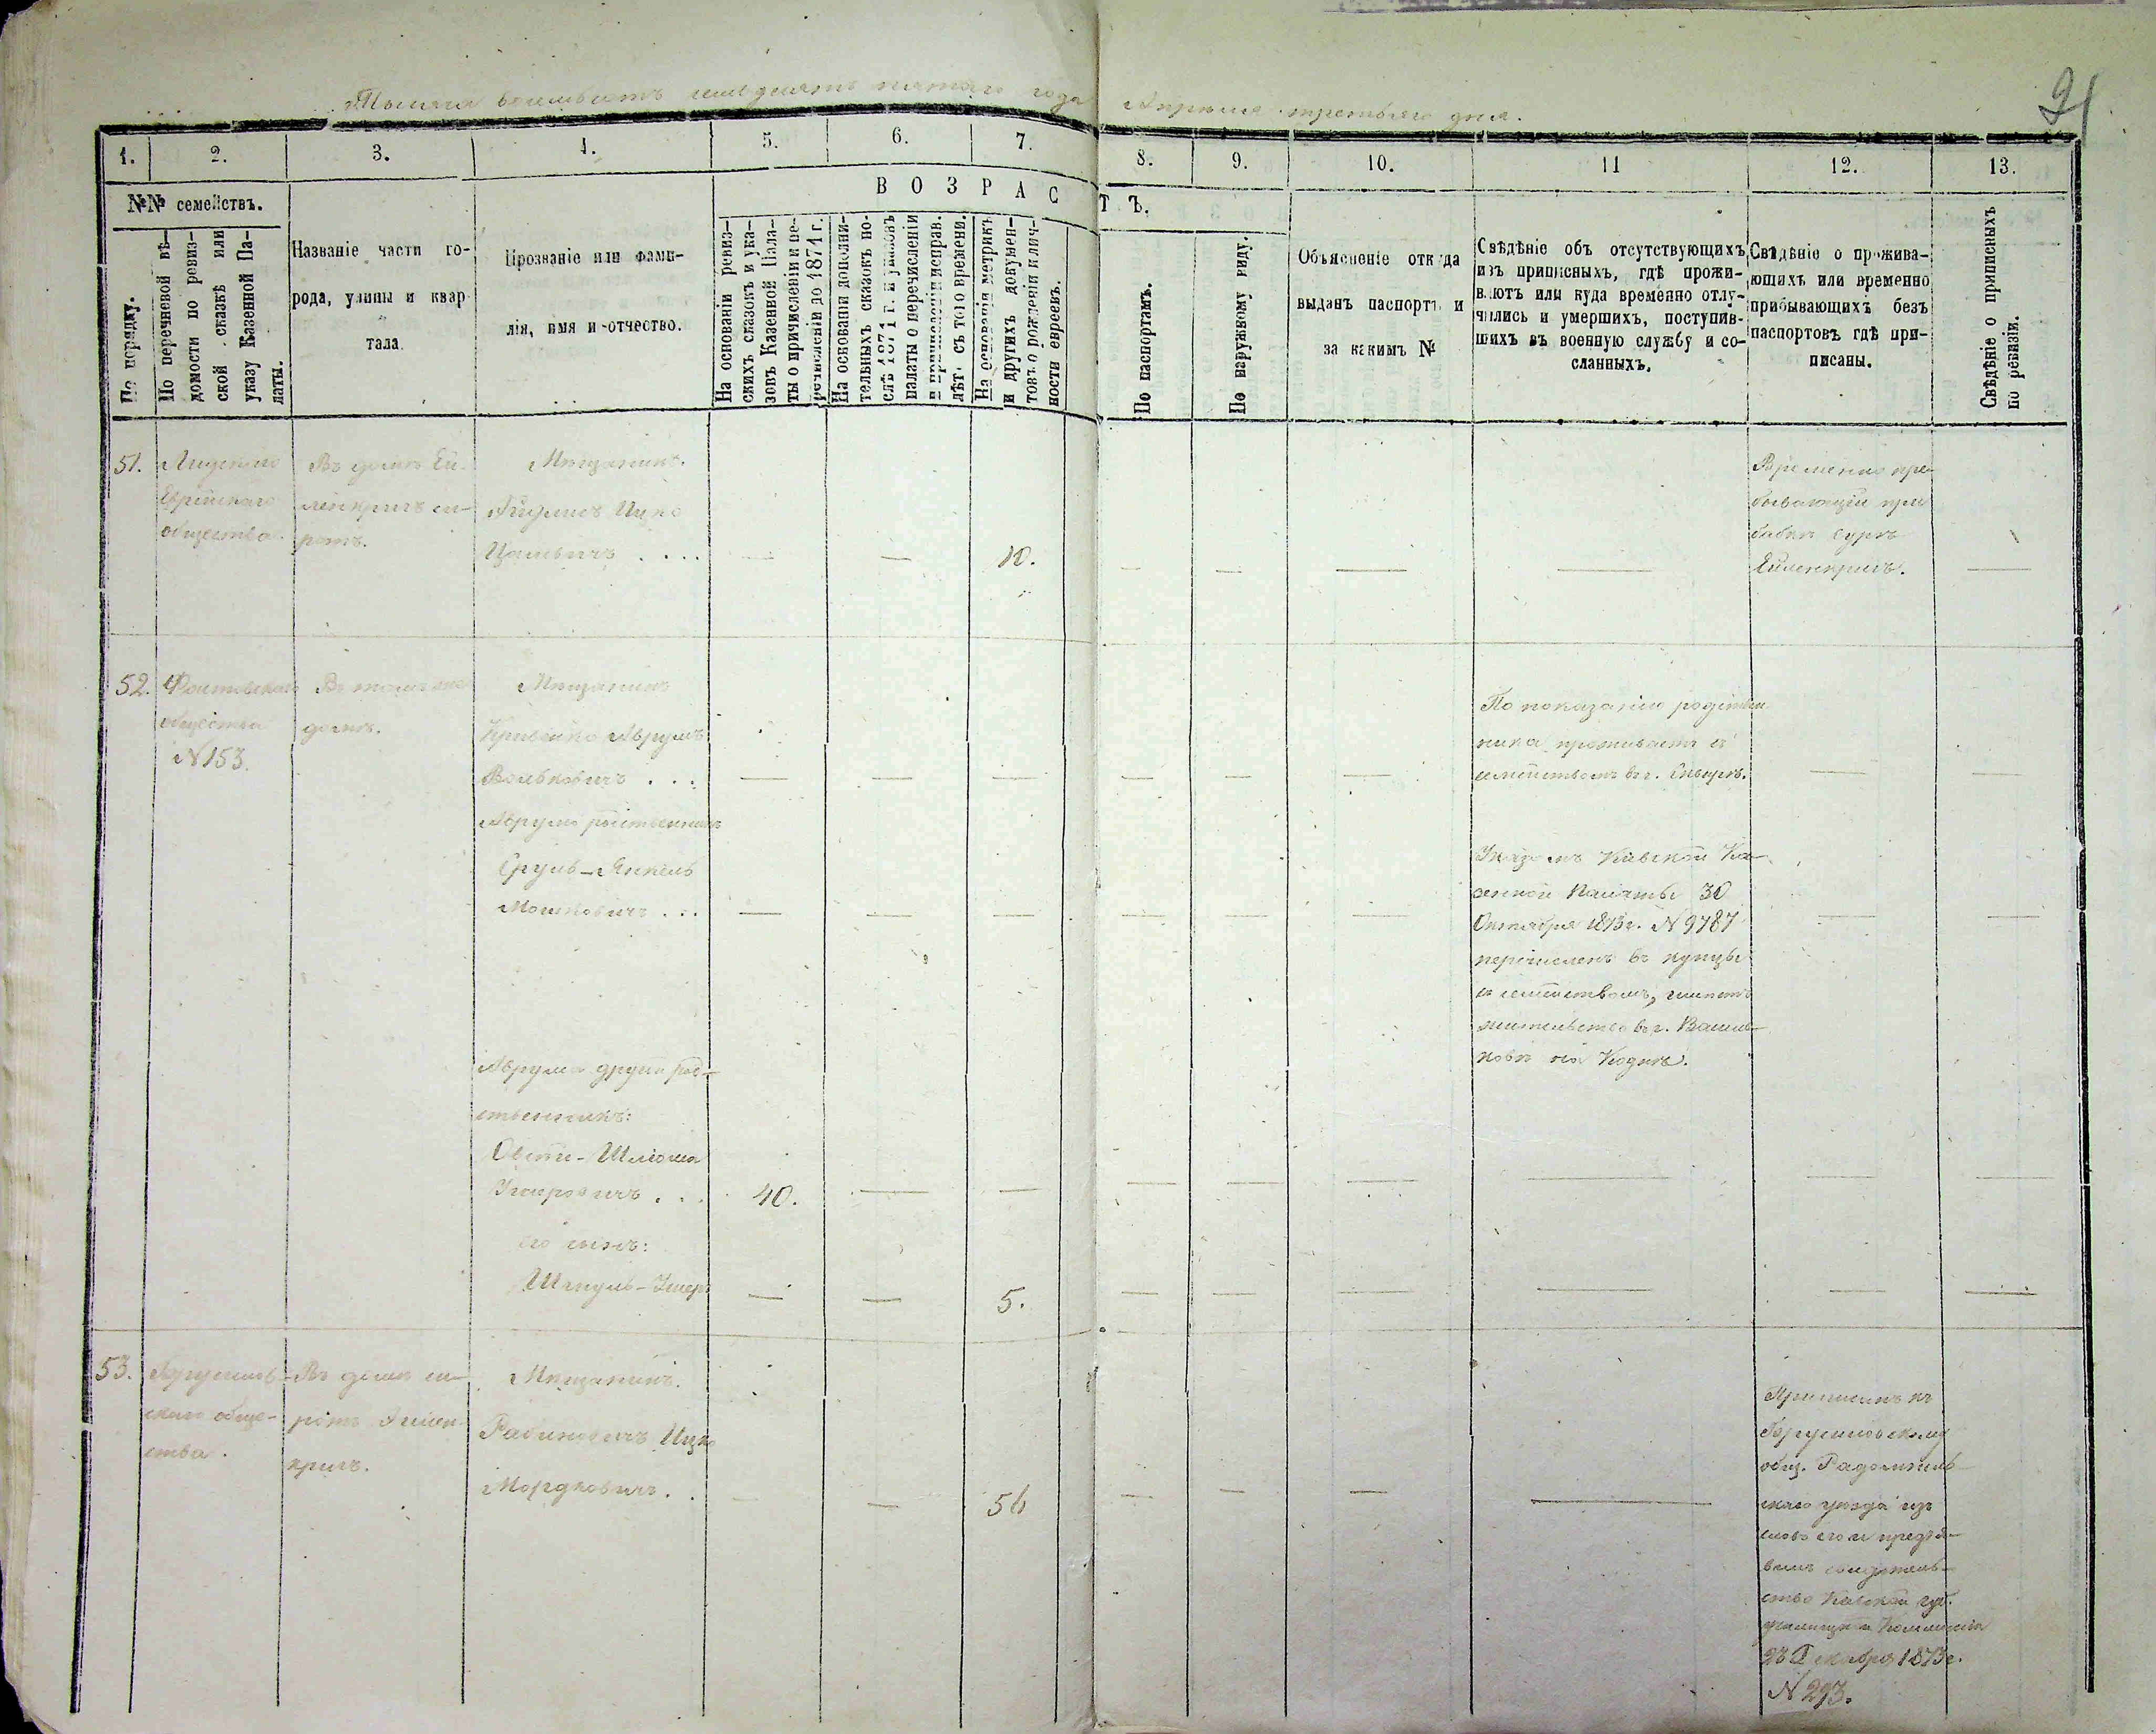 Тысяча восемьсотъ семьдесятъ пятаго года Апрѣля третьяго дня.
91
1. 2. 3. 4. 5. 6. 7. 8. 9. 10. 11 12. 13.
ВОЗРАСТЪ.
№№ семействъ.
По порядку.
По перечневой вѣ-
домости по ревиз-
ской сказкѣ или
указу Казенной Па-
латы.
Названіе части го-
рода, улицы и квар-
тала.
Прозваніе или фами-
лія, имя и отчество.
На основаніи ревиз-
скихъ сказокъ и ука-
зовъ Казенной Пала-
ты о причисленіи и пе-
речисленіи до 1871 г.
На основаніи дополни-
тельныхъ сказокъ по-
слѣ 1871 г. и указовъ
палаты о перечисленіи
и причисленіи исправ.
лѣтъ съ того времени.
На основаніи метрикъ
и другихъ докумен-
товъ о рожденіи и лич-
ности евреевъ.
По паспортамъ.
По наружному виду.
Объясненіе откуда
выданъ паспортъ и
за какимъ №
Свѣдѣніе объ отсутствующихъ
изъ приписныхъ, гдѣ прожи-
ваютъ или куда временно отлу-
чились и умершихъ, поступив-
шихъ въ военную службу и со-
сланныхъ.
Свѣдѣніе о прожива-
ющихъ или временно
прибывающихъ безъ
паспортовъ гдѣ при-
писаны.
Свѣдѣніе о приписныхъ
по ревизіи.
51.
Лидскаго
Еврейскаго
общества.
Въ домѣ Ей-
ленкригъ си-
ротъ.
Мѣщанинъ.
Ицко
10.
Временно пре-
бывающій при
бабкѣ Сурѣ
Ейленкригъ.
52.
Фастовскаго
общества
№ 153.
Въ томъ же
домѣ.
Мѣщанинъ
Аврумъ
Волькович . . .
Аврума родственникъ
Сруль-Янкель
Мошковичъ . . .
По показанію родствен-
ника проживаетъ съ
семействомъ въ г. Сквирѣ.
Указомъ Кіевской Ка-
зенной Палаты 30
Октября 1873 г. № 9787
перечисленъ въ купцы
съ семействомъ, имѣетъ
жительство въ г. Василь-
ковѣ
Аврума другій род-
ственникъ:
Овсей-Шліома
Ушеровичъ . . . 40.
Его сынъ:
Шмуль-Ушеръ 5.
53.
Брусилов-
скаго обще-
ства.
Въ домѣ си-
ротъ Эйлен-
кригъ.
Мѣщанинъ.
Рабиновичъ Ицко
Мордковичъ . .
56
Приписанъ къ
Брусиловскому
общ. Радомысль-
скаго уѣзда
предъя-
вилъ свидѣтель-
ство Кіевской губ.
училищной Коммисіи
23 Декабря 1873 г.
№ 293.